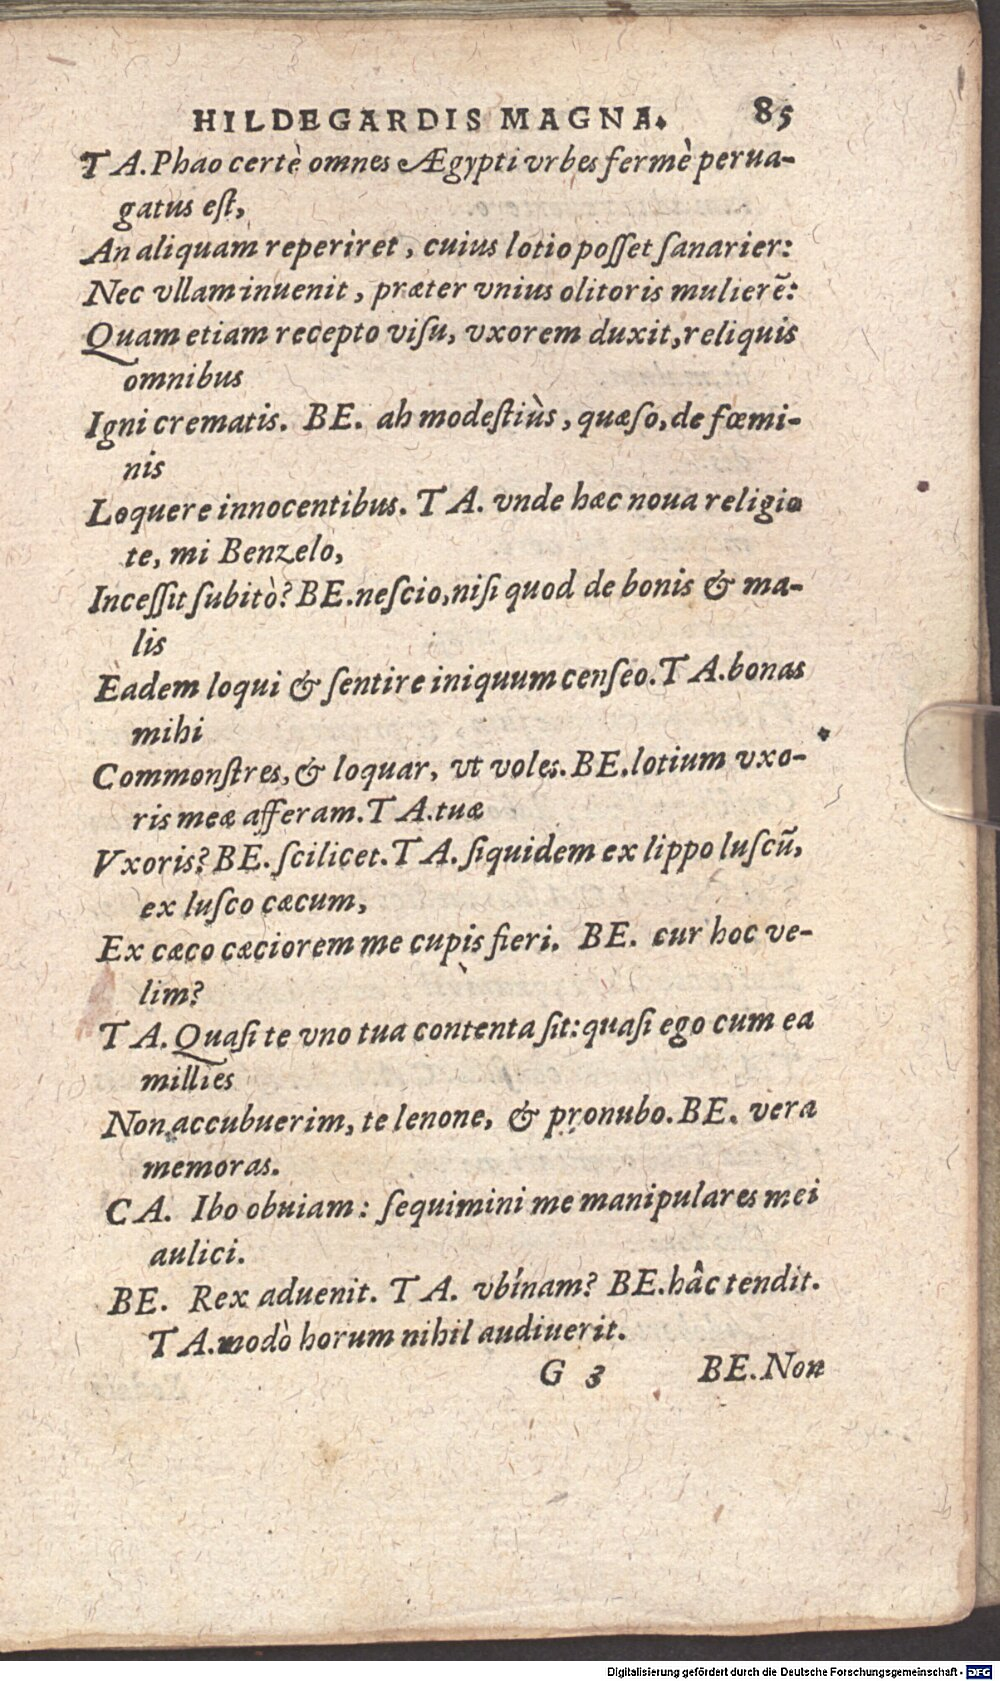 HILDEGARDIS MAGNA. 85
TA. Phao certè omnes Ægypti vrbes fermè perua-
gatus eſt,
An aliquam reperiret, cuius lotio poſſet ſanarier:
Nec vllam inuenit, præter vnius olitoris mulierē:
Quam etiam recepto viſu, vxorem duxit, reliquis
omnibus
Igni crematis. BE. ah modeſtiùs, quæſo, de fœmi-
nis
Loquere innocentibus. TA. vnde hæc noua religio
te, mi Benzelo,
Inceſſit ſubitò? BE. neſcio, niſi quod de bonis & ma-
lis
Eadem loqui & ſentire iniquum cenſeo. TA. bonas
mihi
Commonſtres, & loquar, vt voles. BE. lotium vxo-
ris meæ afferam. TA. tuæ
Vxoris? BE. ſcilicet. TA. ſiquidem ex lippo luſcū,
ex luſco cæcum,
Ex cæco cæciorem me cupis fieri. BE. cur hoc ve-
lim?
TA. Quaſi te vno tua contenta ſit: quaſi ego cum ea
millies
Non accubuerim, te lenone, & pronubo. BE. vera
memoras.
CA. Ibo obuiam: ſequimini me manipulares mei
aulici.
BE. Rex aduenit. TA. vbínam? BE. hâc tendit.
TA. modò horum nihil audiuerit.
G 3 BE. Non
Digitalisierung gefördert durch die Deutsche Forschungsgemeinschaft - DFG